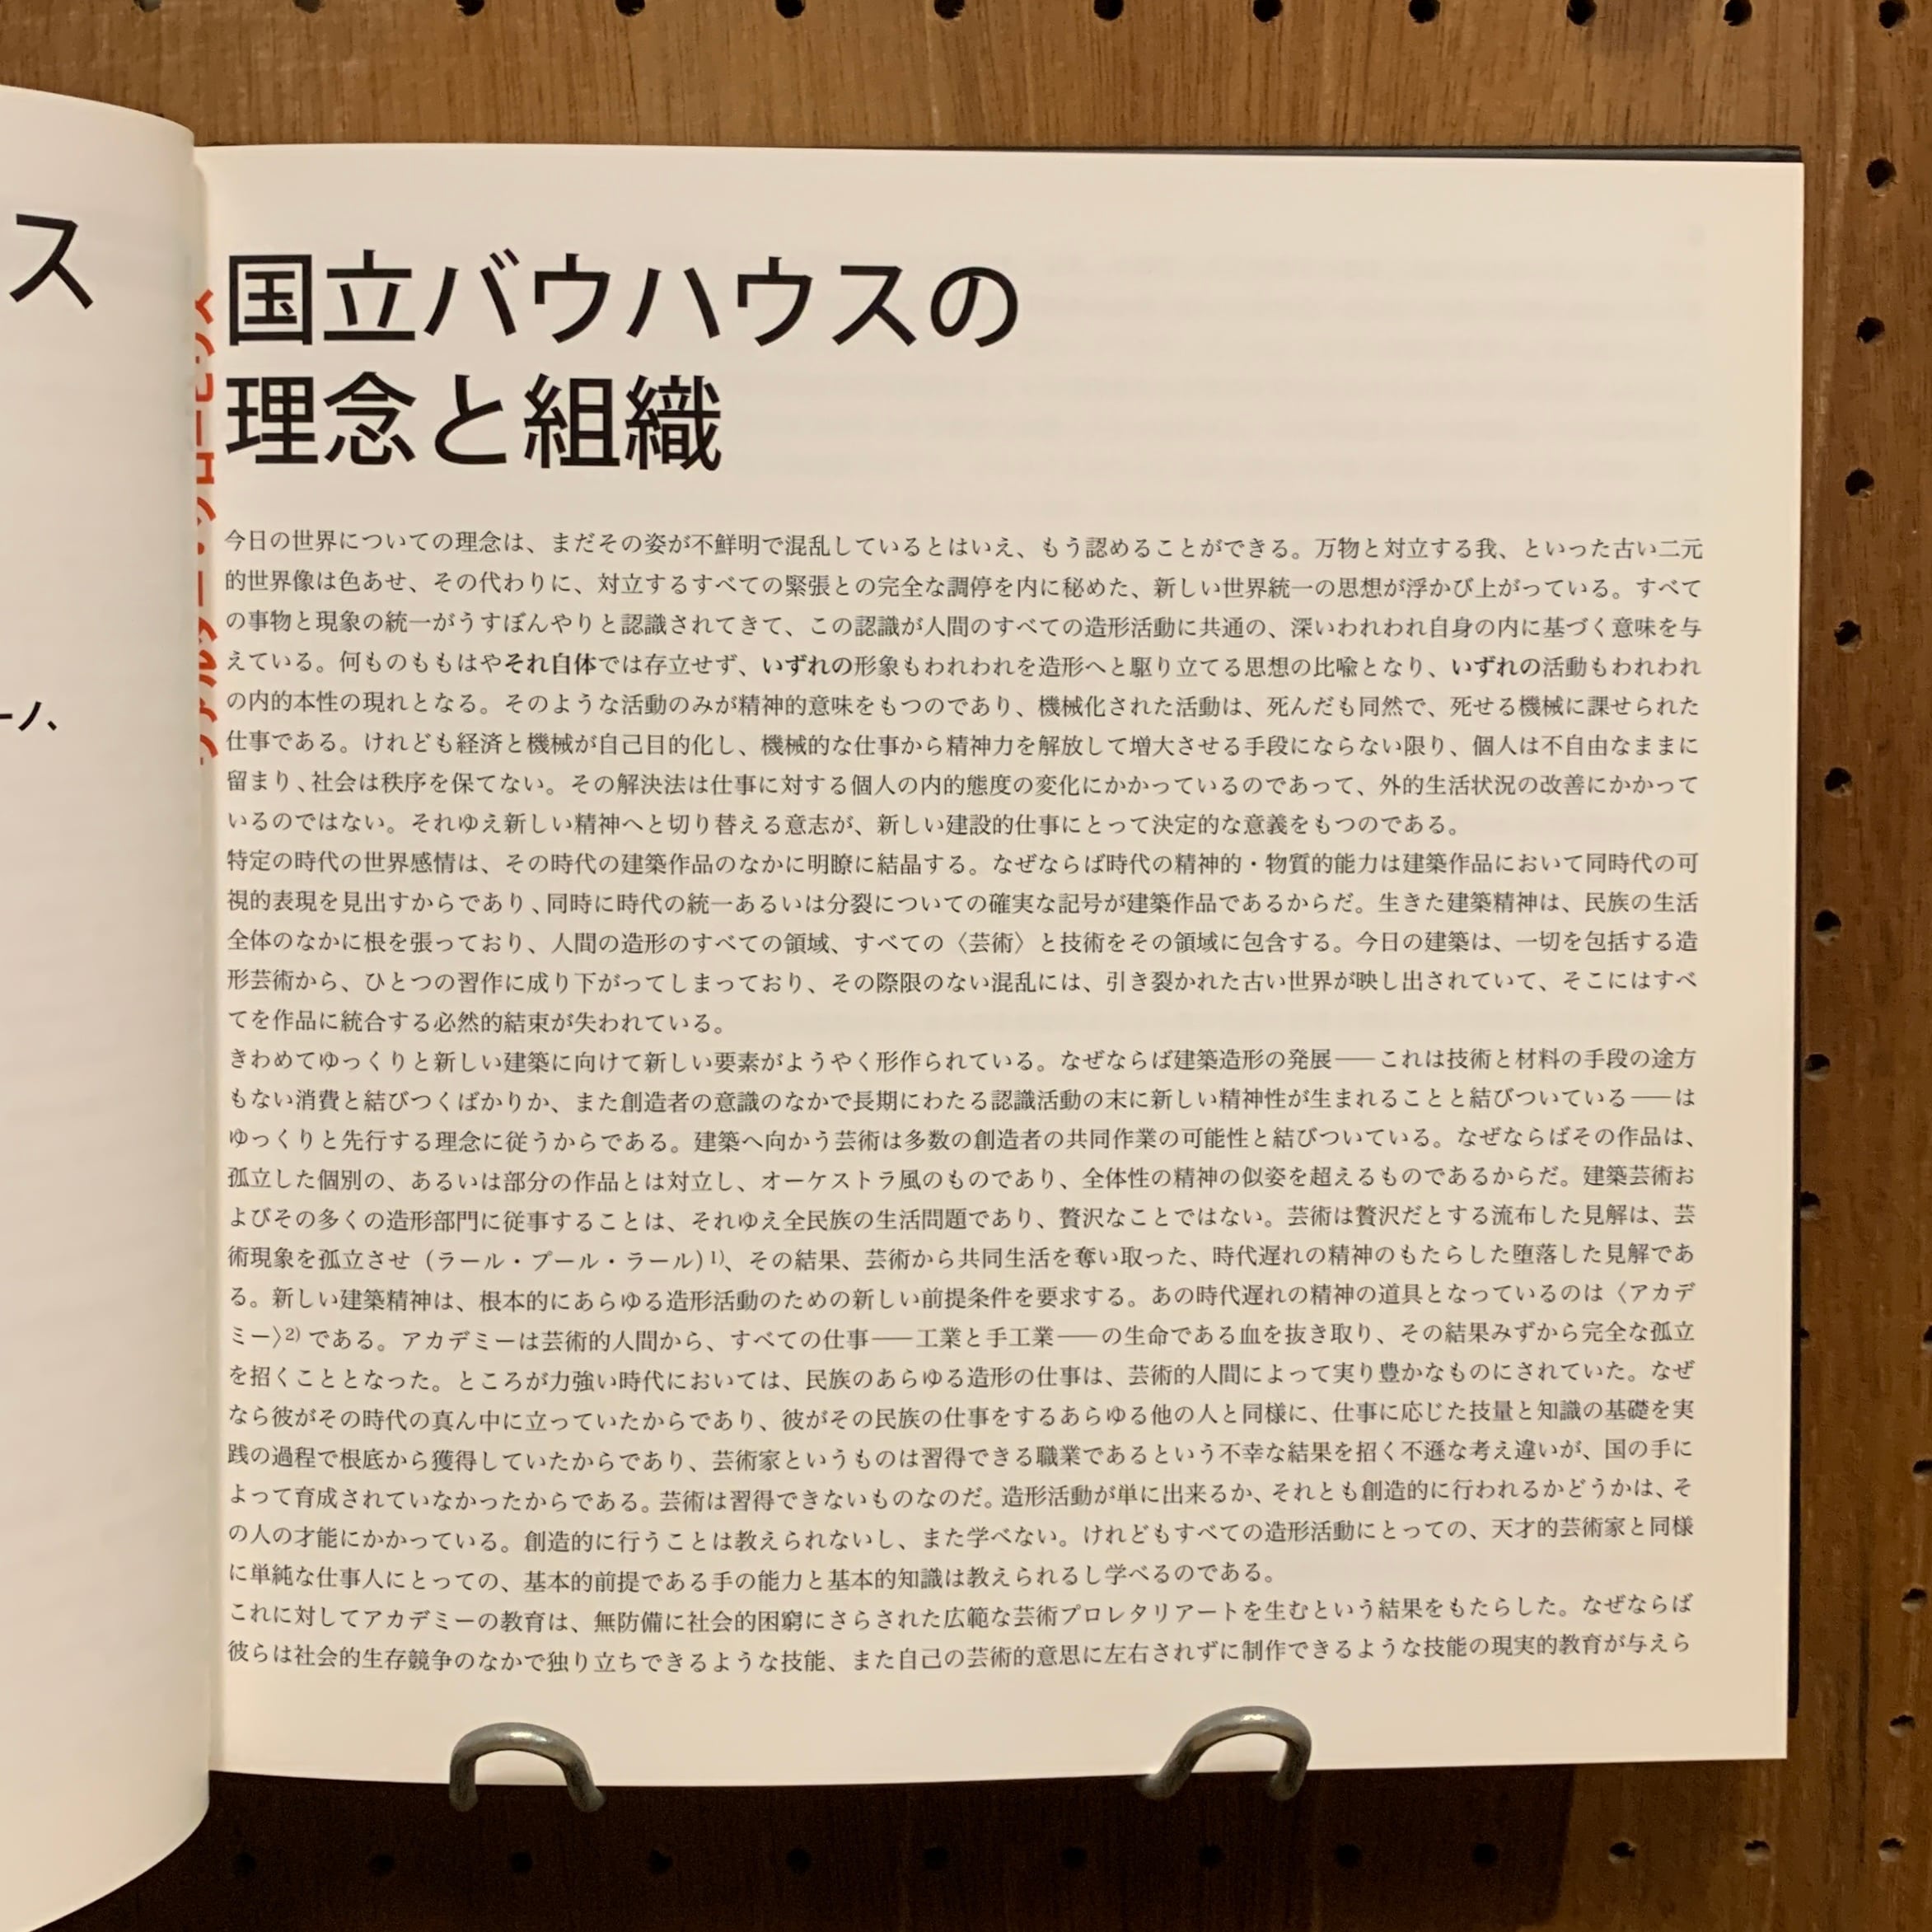 ス
ーノ、
国立バウハウスの
理念と組織
今日の世界についての理念は、まだその姿が不鮮明で混乱しているとはいえ、もう認めることができる。万物と対立する我、といった古い二元
的世界像は色あせ、その代わりに、対立するすべての緊張との完全な調停を内に秘めた、新しい世界統一の思想が浮かび上がっている。すべて
の事物と現象の統一がうすぼんやりと認識されてきて、この認識が人間のすべての造形活動に共通の、深いわれわれ自身の内に基づく意味を与
えている。何ものももはやそれ自体では存立せず、いずれの形象もわれわれを造形へと駆り立てる思想の比喩となり、いずれの活動もわれわれ
の内的本性の現れとなる。そのような活動のみが精神的意味をもつのであり、機械化された活動は、死んだも同然で、死せる機械に課せられた
仕事である。けれども経済と機械が自己目的化し、機械的な仕事から精神力を解放して増大させる手段にならない限り、個人は不自由なままに
留まり、社会は秩序を保てない。その解決法は仕事に対する個人の内的態度の変化にかかっているのであって、外的生活状況の改善にかかって
いるのではない。それゆえ新しい精神へと切り替える意志が、新しい建設的仕事にとって決定的な意義をもつのである。
特定の時代の世界感情は、その時代の建築作品のなかに明瞭に結晶する。なぜならば時代の精神的・物質的能力は建築作品において同時代の可
視的表現を見出すからであり、同時に時代の統一あるいは分裂についての確実な記号が建築作品であるからだ。生きた建築精神は、民族の生活
全体のなかに根を張っており、人間の造形のすべての領域、すべての〈芸術〉と技術をその領域に包含する。今日の建築は、一切を包括する造
形芸術から、ひとつの習作に成り下がってしまっており、その際限のない混乱には、引き裂かれた古い世界が映し出されていて、そこにはすべ
てを作品に統合する必然的結束が失われている。
きわめてゆっくりと新しい建築に向けて新しい要素がようやく形作られている。なぜならば建築造形の発展――これは技術と材料の手段の途方
もない消費と結びつくばかりか、また創造者の意識のなかで長期にわたる認識活動の末に新しい精神性が生まれることと結びついている――は
ゆっくりと先行する理念に従うからである。建築へ向かう芸術は多数の創造者の共同作業の可能性と結びついている。なぜならばその作品は、
孤立した個別の、あるいは部分の作品とは対立し、オーケストラ風のものであり、全体性の精神の似姿を超えるものであるからだ。建築芸術お
よびその多くの造形部門に従事することは、それゆえ全民族の生活問題であり、贅沢なことではない。芸術は贅沢だとする流布した見解は、芸
術現象を孤立させ（ラール・プール・ラール）1)、その結果、芸術から共同生活を奪い取った、時代遅れの精神のもたらした堕落した見解であ
る。新しい建築精神は、根本的にあらゆる造形活動のための新しい前提条件を要求する。あの時代遅れの精神の道具となっているのは〈アカデ
ミー〉2)である。アカデミーは芸術的人間から、すべての仕事――工業と手工業――の生命である血を抜き取り、その結果みずから完全な孤立
を招くこととなった。ところが力強い時代においては、民族のあらゆる造形の仕事は、芸術的人間によって実り豊かなものにされていた。なぜ
なら彼がその時代の真ん中に立っていたからであり、彼がその民族の仕事をするあらゆる他の人と同様に、仕事に応じた技量と知識の基礎を実
践の過程で根底から獲得していたからであり、芸術家というものは習得できる職業であるという不幸な結果を招く不遜な考え違いが、国の手に
よって育成されていなかったからである。芸術は習得できないものなのだ。造形活動が単に出来るか、それとも創造的に行われるかどうかは、そ
の人の才能にかかっている。創造的に行うことは教えられないし、また学べない。けれどもすべての造形活動にとっての、天才的芸術家と同様
に単純な仕事人にとっての、基本的前提である手の能力と基本的知識は教えられるし学べるのである。
これに対してアカデミーの教育は、無防備に社会的困窮にさらされた広範な芸術プロレタリアートを生むという結果をもたらした。なぜならば
彼らは社会的生存競争のなかで独り立ちできるような技能、また自己の芸術的意思に左右されずに制作できるような技能の現実的教育が与えら